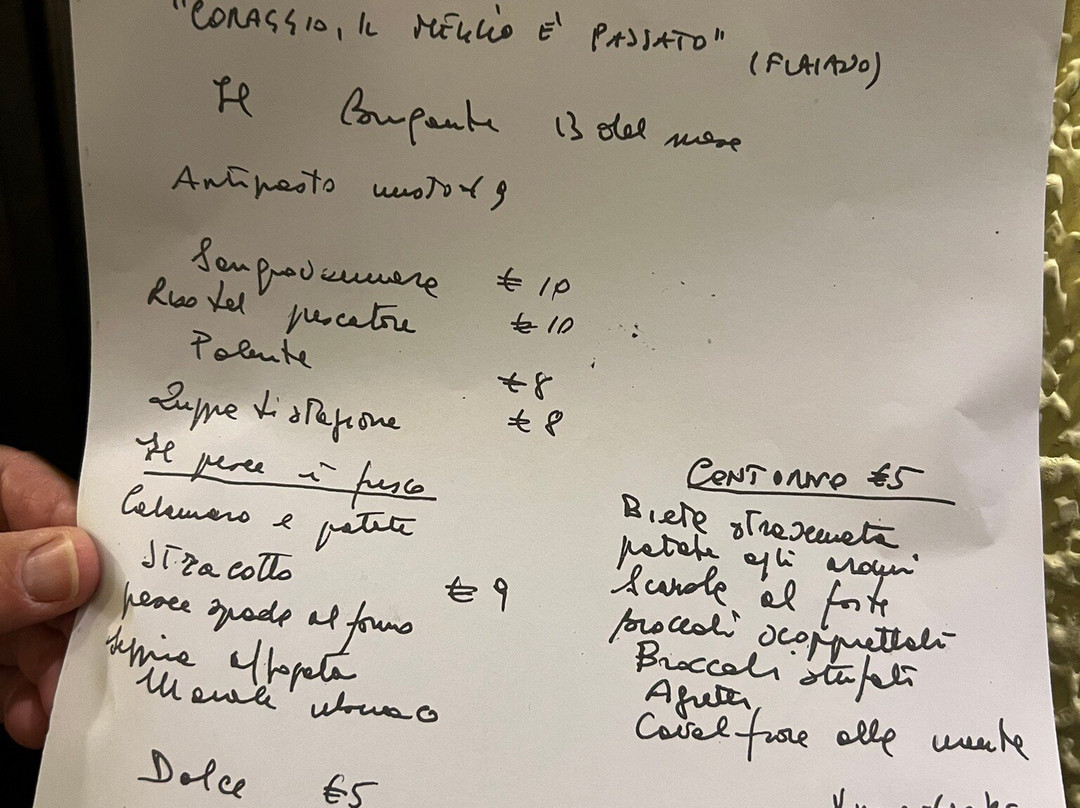 "CORAGGIO, IL MEGLIO E' PASSATO"
(FLAIANO)
Il Brigante 13 del mese
Antipasto misto € 9
Sangiovannara € 10
Riso del pescatore € 10
Polenta € 8
Zuppa di stagione € 8
Il pesce è fresco
Calamaro e patate
Stracotto € 9
pesce spada al forno
Seppia affogata
Maiale ubriaco
Dolce €5
CONTORNO €5
Biete strascinate
patate agli aromi
Scarole al forte
broccoli scoppiettati
Broccoli stufati
Agretti
Cavolfiore alla menta